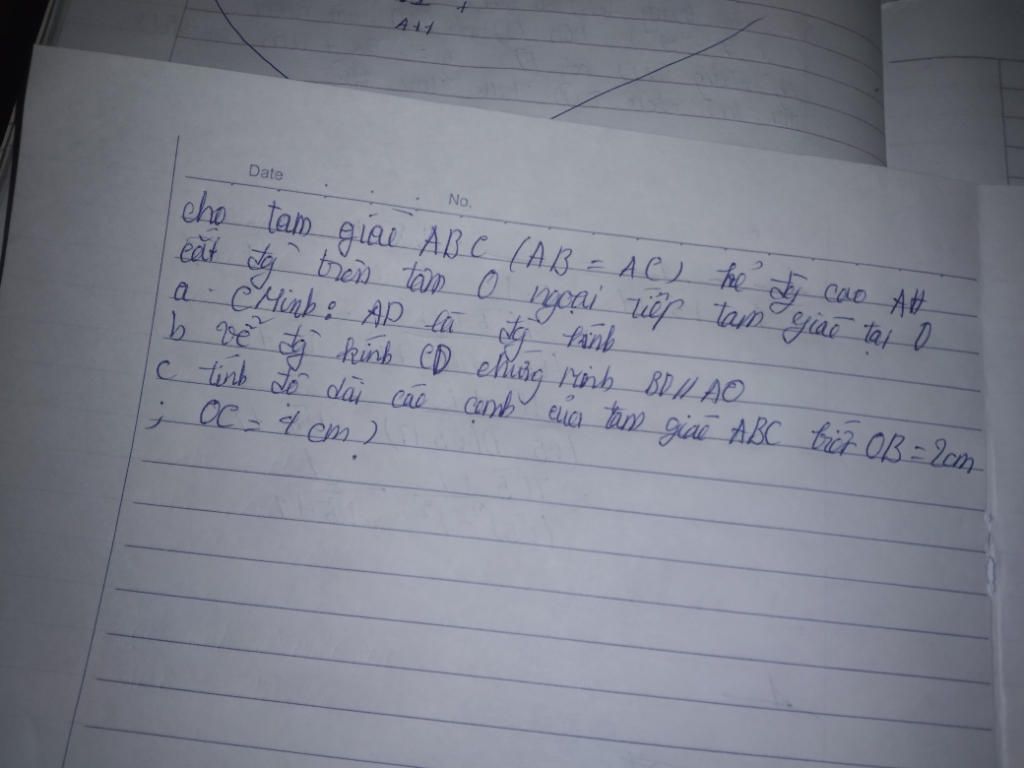 AH
Date
No.
cho tam giác ABC (AB = AC) kẻ đg cao AH
cắt đg tròn tâm O ngoại tiếp tam giác tại D
a. CMinh: AD là đg kính
b vẽ đg kính CD chứng minh BD // AO
c tính độ dài các cạnh của tam giác ABC biết OB = 2cm
; OC = 4 cm)